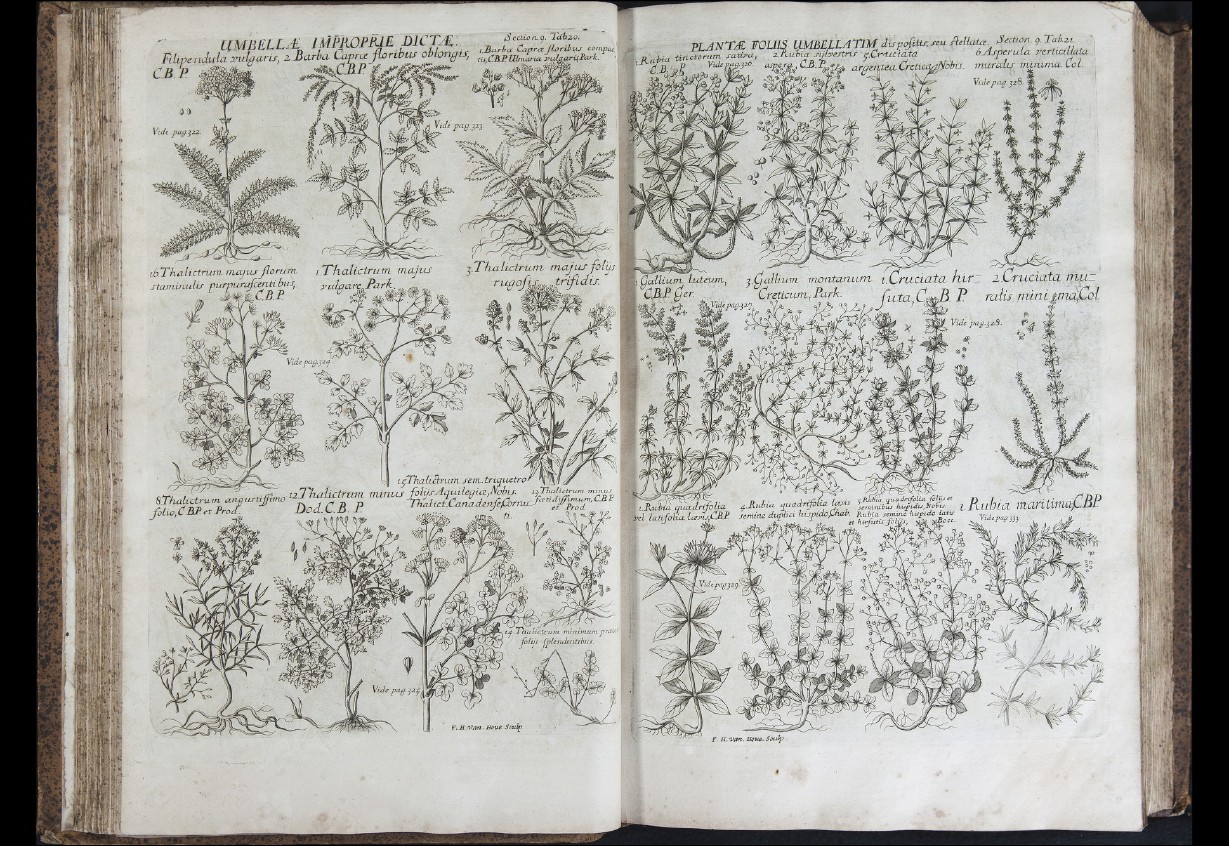 UMBELLÆ IMPROPRIE DICTÆ. Section. 9. Tab. 20.
Filipendula vulgaris, 2 Barba Capræ floribus oblongis,
C.B.P. C.B.P
1. Barba Capræ floribus compac
tis, C.B.P Ulmaria vulgaris, Park.
Vide pag. 322
Vide pag. 323
16 Thalictrum majus florum
staminulis purpurascentibus,
C.B.P.
1 Thalictrum majus
vulgare, Park
3. Thalictrum majus folijs
rugosis trifidis.
Vide pag. 324
8 Thalictrum angustissimo
folio, C.B.P et Prod.
12 Thalictrum minus
Dod. C.B.P
15 Thalictrum sem. triquetro
folijs Aquilegiæ, Nobis.
Thalict. Canadense, Cornu.
13 Thalictrum minus
foetidissimum, C.B.P
et Prod
14 Thalictrum minimum
folijs splendentibus.
Vide pag. 325
F. H. Van. Houe Sculp
PLANTÆ FOLIIS UMBELLATIM dispositis, seu stellatæ. Section. 9. Tab. 21.
1. Rubia tinctorum sativa,
C.B.P Vide pag. 326
2 Rubia sylvestris
aspera C.B.P.
5 Cruciata
argentea Cretica, Nobis.
6 Asperula verticillata
muralis minima Col
Vide pag. 328
Gallium luteum,
C.B.P Ger
3 Gallium montanum
Creticum, Park.
1 Cruciata hir-
suta, C.B.P
2 Cruciata mu-
ralis minima, Col
Vide pag. 327
Vide pag. 328.
1. Rubia quadrifolia
vel latifolia lævis, C.B.P
4. Rubia quadrifolia lævis
semine duplici hispido, Chab.
Rubia quadrifolia folijs et
seminibus hispidis, Nobis
Rubia semine hispido latis
et hirsutis folijs, Bocc.
1 Rubia maritima, C.B.P
Vide pag. 333
Vide pag. 329
F. H. Van. Houe. Sculp.